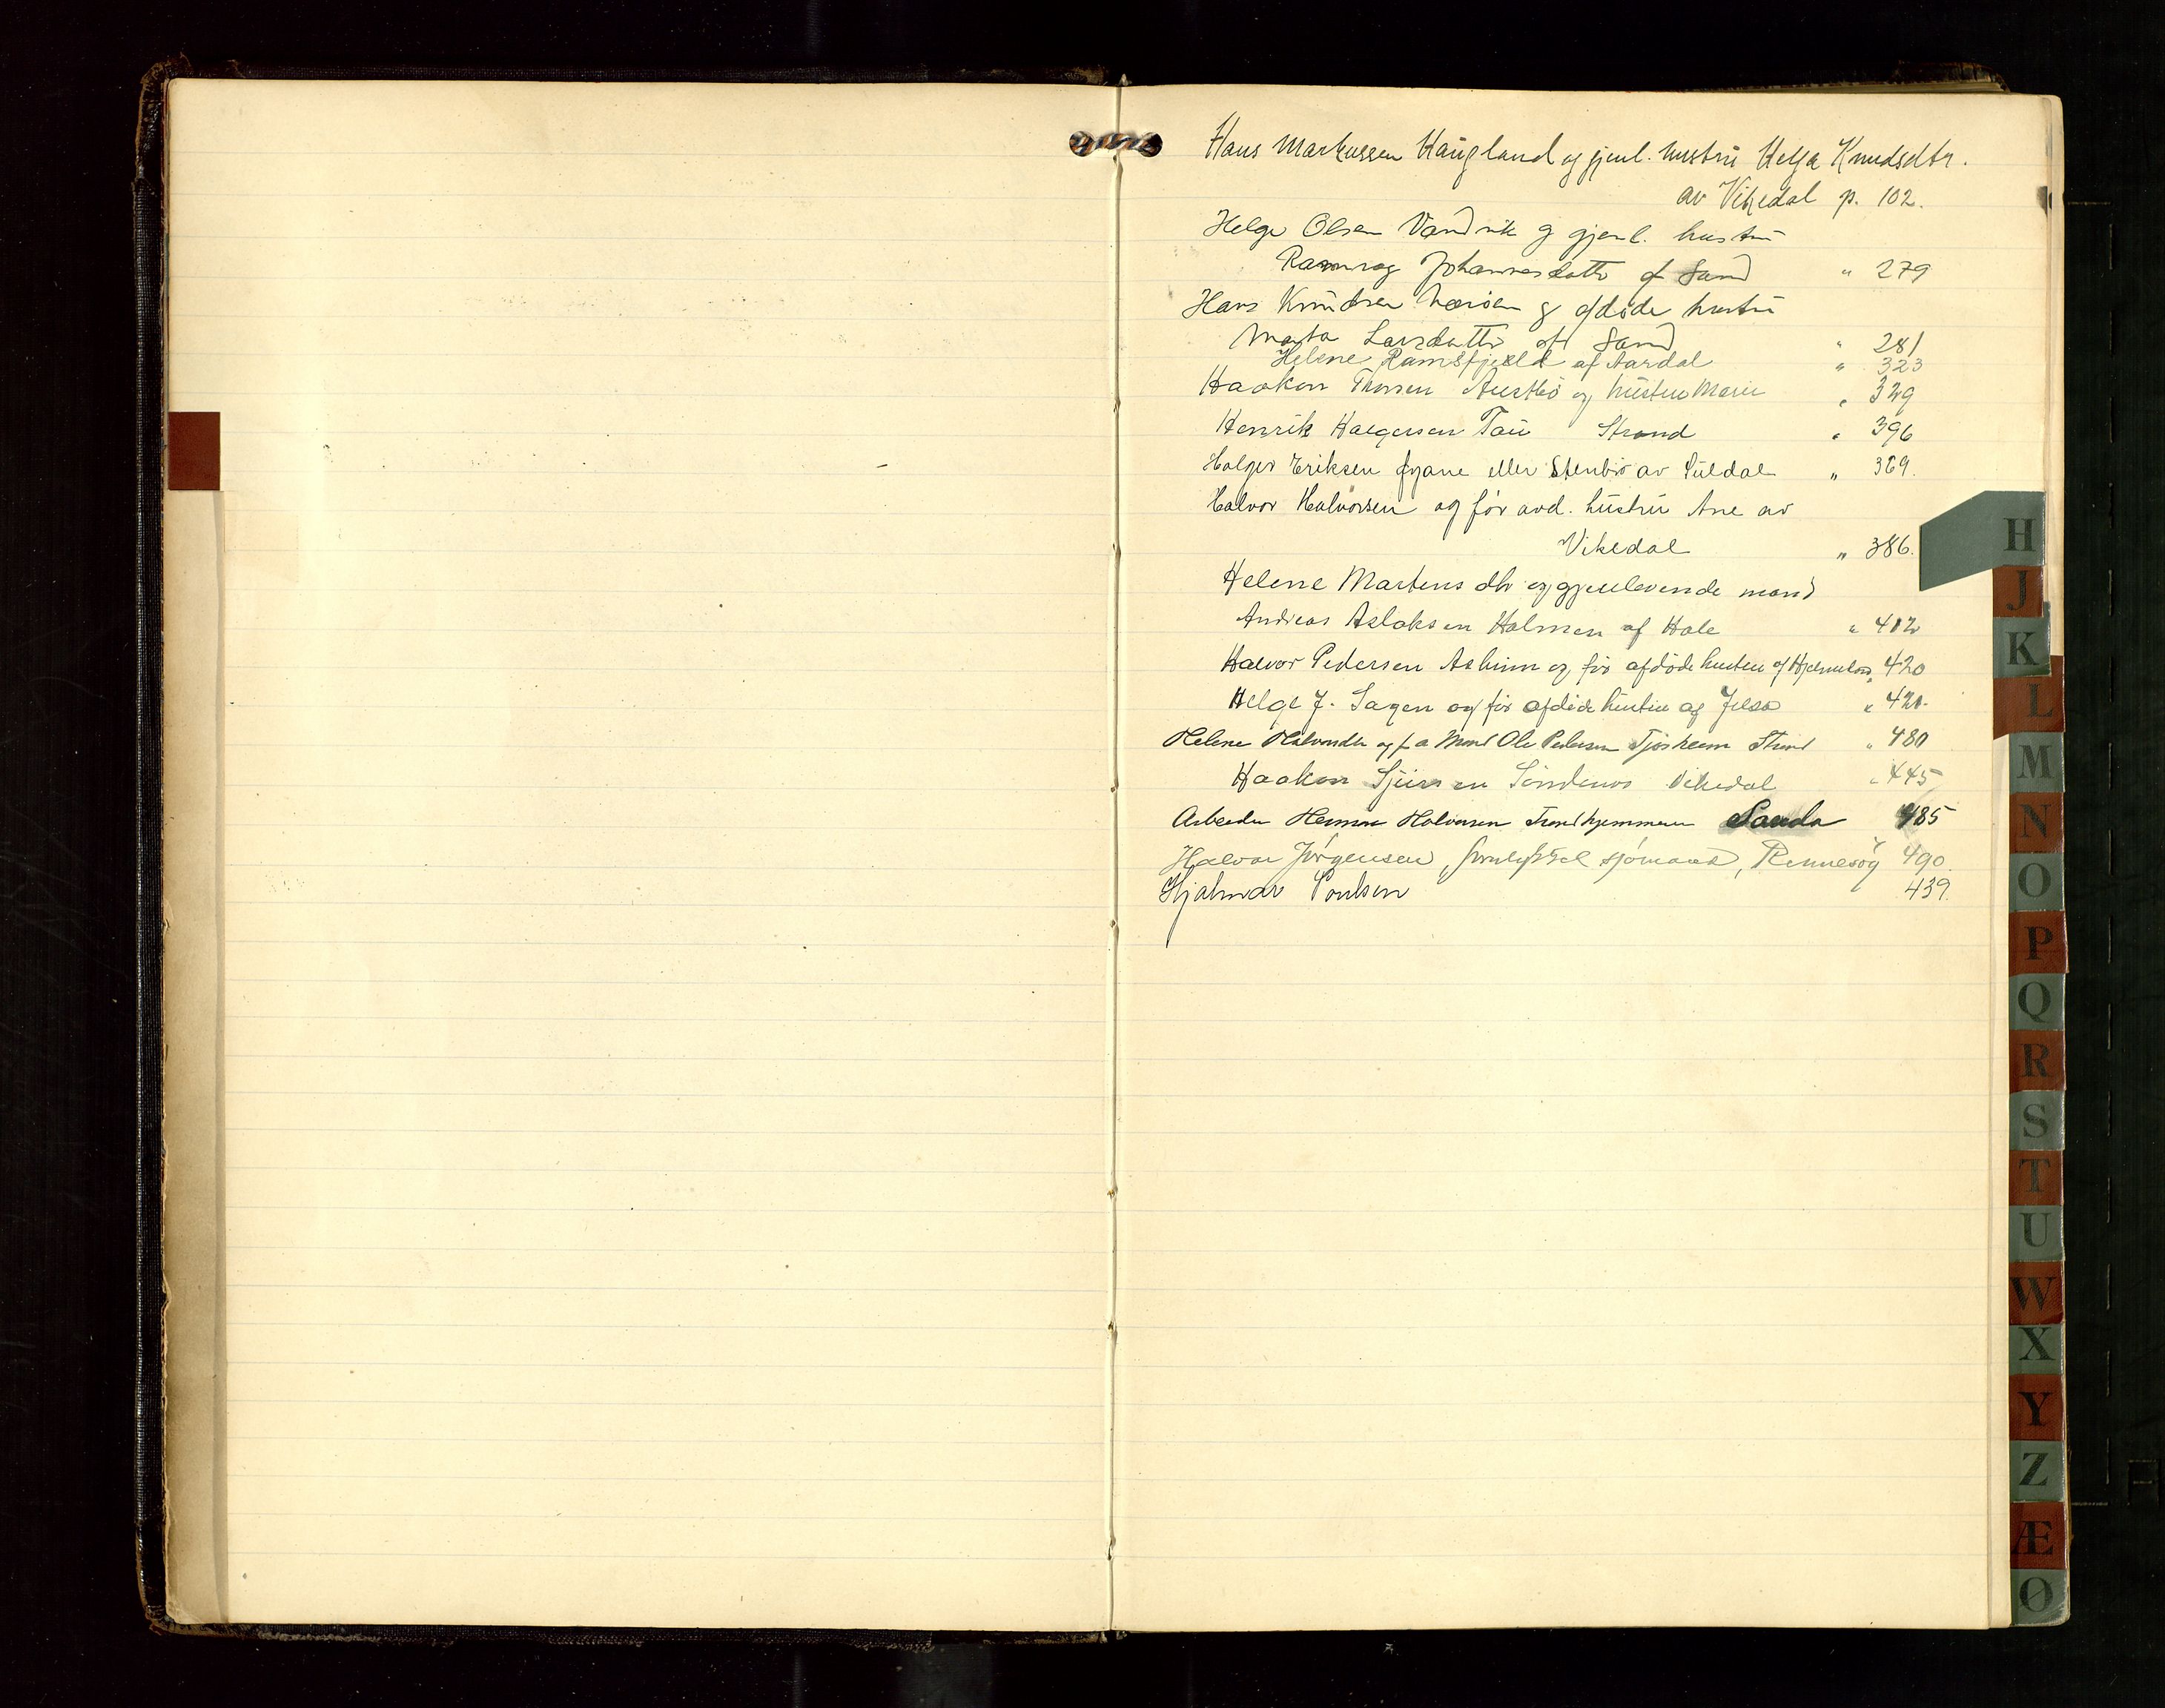 Hans Markussen Haugland og gjenl. hustru Helga Knudsdtr.
av Vikedal p. 102.
Helge Olsen Vandvik og gjenl. hustru
Johannesdatter af Sand " 279
Hans Knudsen og afdøde hustru
Marta Larsdatter af Sand " 281
Helene Ramsfjeld af Aardal " 323
Haakon Thorsen Austbø og hustru Marie " 329
Henrik Halgersen Tau Strand " 396
Holger Eriksen eller Stenbro av Suldal " 369.
Halvor Halvorsen og før avd. hustru Ane av
Vikedal " 386.
Helene Martens dtr og gjenlevende mand
Andreas Aslaksen Holmen af Hole " 412
Halvor Pedersen og før afdøde hustru af Hjelmeland " 420
Helge J. Sagen og før afdøde hustru af Jelsa " 420.
Helene og f. a. Mand Ole Pedersen Tjøsheim Strand " 480
Haakon Vikedal " 445
Arbeider Herman Halvorsen Trondhjemmeren Sauda 485
Halvor Jørgensen, sjømand, Rennesøy 490.
Hjalmar Poulsen 439.
H
J
K
L
M
N
O
P
Q
R
S
T
U
W
X
Y
Z
Æ
Ø